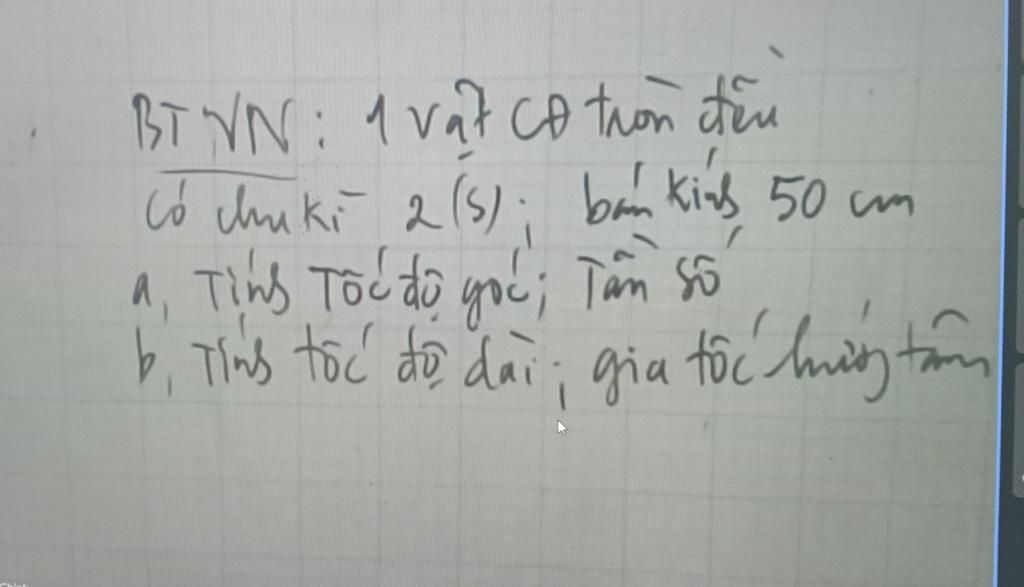 BTVN: 1 vật CĐ tròn đều
có chu kì 2 (s); bán kính 50 cm
a, Tính Tốc độ góc; Tần số
b, Tính tốc độ dài; gia tốc hướng tâm